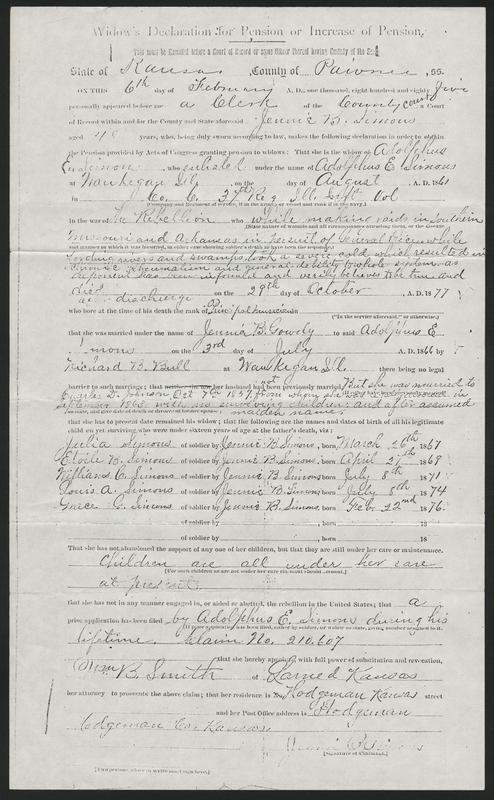 Widow's Declaration for Pension or Increase of Pension.
This must be Executed before a Court of Record or some Officer thereof having Custody of the Seal.
State of Kansas, County of Pawnee, ss.
ON THIS 6th day of February A. D., one thousand, eight hundred and eighty five
personally appeared before me a Clerk of the County Court a Court
of Record within and for the County and State aforesaid Jennie B. Simons
aged years, who, being duly sworn according to law, makes the following declaration in order to obtain
the Pension provided by Acts of Congress granting pension to widows: That she is the widow of Adolphus
E. Simons, who enlisted under the name of Adolphus E. Simons
at Waukegan Ill. on the day of August A. D. 1861
in Co. C. 37th Reg Ill. Vol
in the war of the Rebellion who while making raids in Southern
Missouri and Arkansas in pursuit of General Price while
fording rivers and swamps took a severe cold which resulted in
rheumatism and general debility
informed and verily believes to be true and
died discharge on the 29th day of October, A. D. 1877
who bore at the time of his death the rank of
that she was married under the name of Jennie B. Gowdy to said Adolphus E
Simons on the 3rd day of July A. D. 1866 by
Richard B. Bull at Waukegan Ill. there being no legal
barrier to such marriage; that her husband had not been previously married, But she was married to
Charles D. Johnson Oct 7th 1857, from whom she was in
September 1863, with no surviving children and after assumed
maiden name;
that she has to present date remained his widow; that the following are the names and dates of birth of all his legitimate
child en yet surviving who were under sixteen years of age at the father's death, viz:
Julia Simons of soldier by Jennie B. Simons, born March 26th 1867
B. Simons of soldier by Jennie B. Simons, born April 27th 1869
William C. Simons of soldier by Jennie B. Simons born July 8th 1871
Louis A. Simons of soldier by Jennie B. Simons born July 8th 1874
Grace C. Simons of soldier by Jennie B. Simons, born Feb. 22nd 1876.
of soldier by , born 18
of soldier by , born 18
That she has not abandoned the support of any one of her children, but that they are still under her care or maintenance.
Children are all under her care
[For such children as are not under her care claimant should account.]
at present.
that she has not in any manner engaged in, or aided or abetted, the rebellion in the United States; that a
prior application has been filed by Adolphus E. Simons during his
lifetime. Claim No. 210.607
that she hereby appoints, with full power of substitution and revocation,
Wm R. Smith of Larned Kansas
her attorney to prosecute the above claim; that her residence is No. Hodgeman Kansas street
and her Post Office address is Hodgeman
Hodgeman Co. Kansas
[Signature of Claimant.]
[Two persons who can write must sign here.]